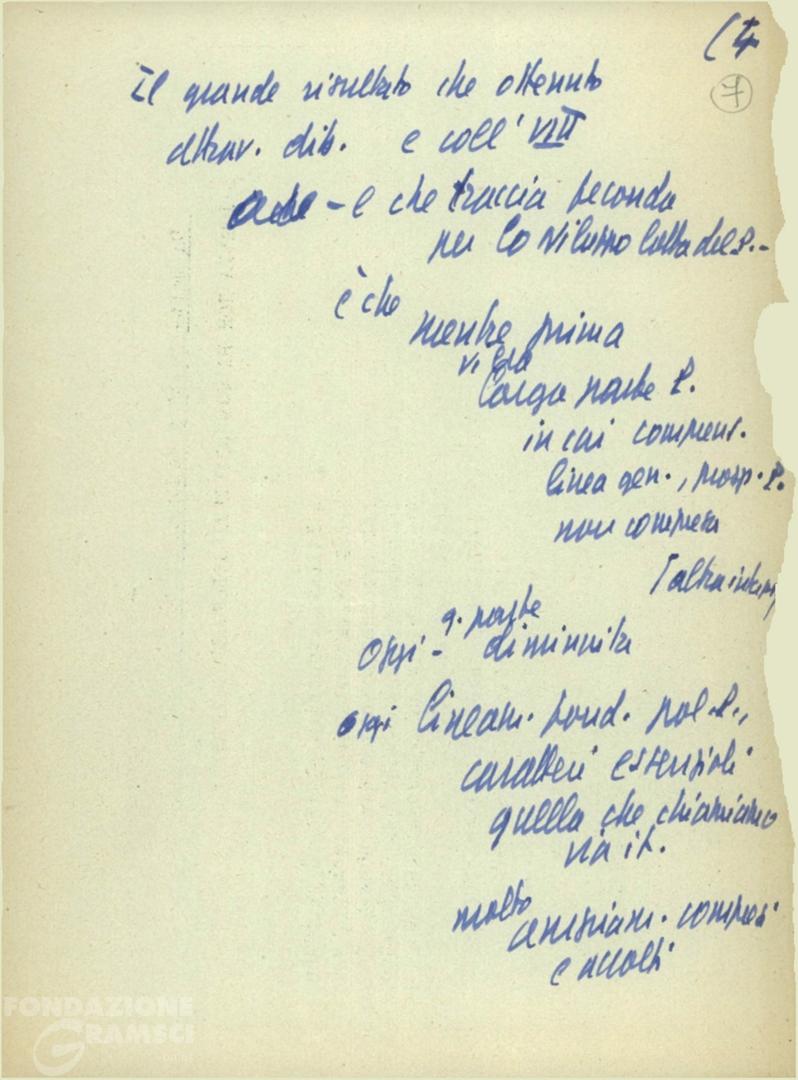 (4
7
Il grande risultato che ottenuto
attrav. dib. e coll' VIII
e che traccia feconda
per lo sviluppo lotta del P.-
è che
mentre prima
vi era
larga parte P.
in cui compren.
linea gen., prosp. P.
non compresa
Oggi - q. parte
diminuita
oggi lineam. fond. pol. P.,
caratteri essenziali
quella che chiamiamo
via it.
molto
ampiam. compresi
e accolti
FONDAZIONE
GRAMSCI